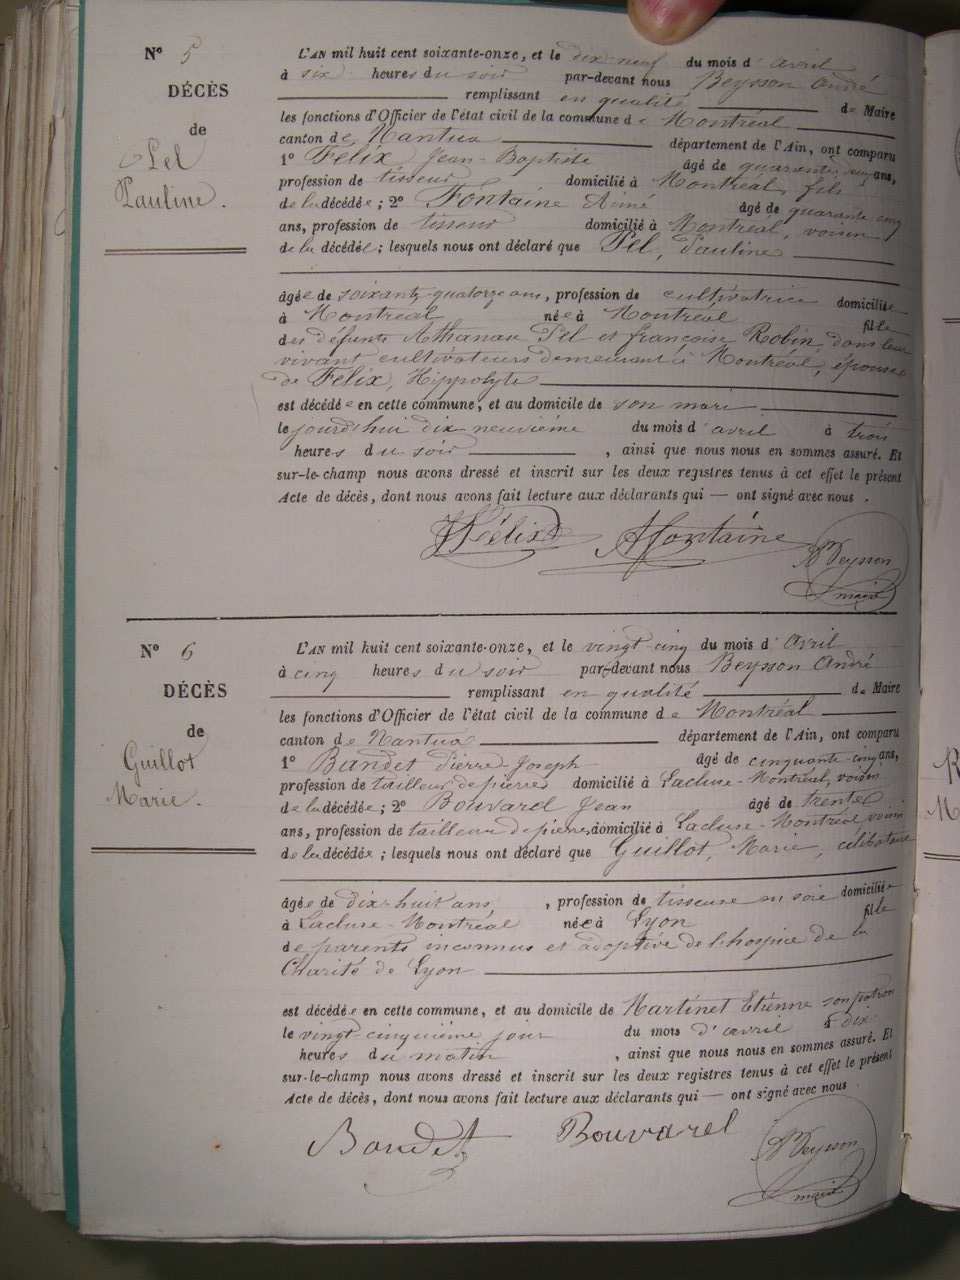 N° 5
DÉCÈS
de
Pel
Pauline.
L'AN mil huit cent soixante-onze, et le dix neuf du mois d'avril
à six heures du soir par-devant nous Beysson André
remplissant en qualité de Maire
les fonctions d'Officier de l'état civil de la commune de Montréal
canton de Nantua département de l'Ain, ont comparu
1° Félix Jean-Baptiste âgé de quarante cinq ans,
profession de tisseur domicilié à Montréal, fils
de la décédée; 2° Fontaine Aimé âgé de quarante cinq
ans, profession de tisseur domicilié à Montréal, voisin
de la décédée; lesquels nous ont déclaré que Pel, Pauline
âgée de soixante-quatorze ans, profession de cultivatrice domiciliée
à Montréal née à Montréal fille
des défunts Athanase Pel et françoise Robin, dans leur
vivant cultivateurs demeurant à Montréal, épouse
de Félix, Hippolyte
est décédée en cette commune, et au domicile de son mari
le jourd'hui dix neuvième du mois d'avril à trois
heures du soir, ainsi que nous nous en sommes assuré. Et
sur-le-champ nous avons dressé et inscrit sur les deux registres tenus à cet effet le présent
Acte de décès, dont nous avons fait lecture aux déclarants qui — ont signé avec nous.
Félix AFontaine Beysson
maire
N° 6
DÉCÈS
de
Guillot
Marie.
L'AN mil huit cent soixante-onze, et le vingt-cinq du mois d'Avril
à cinq heures du soir par-devant nous Beysson André
remplissant en qualité de Maire
les fonctions d'Officier de l'état civil de la commune de Montréal
canton de Nantua département de l'Ain, ont comparu
1° Baudet Pierre-Joseph âgé de cinquante-cinq ans,
profession de tailleur de pierres domicilié à Lacluse-Montréal, voisin
de la décédée; 2° Bouvard Jean âgé de trente
ans, profession de tailleur de pierres domicilié à Lacluse-Montréal voisin
de la décédée; lesquels nous ont déclaré que Guillot, Marie, célibataire
âgée de dix-huit ans, profession de tisseuse en soie domiciliée
à Lacluse-Montréal née à Lyon fille
de parents inconnus et adoptive de l'hospice de la
Charité de Lyon
est décédée en cette commune, et au domicile de Martinet Etienne son patron
le vingt-cinquième jour du mois d'avril à dix
heures du matin, ainsi que nous nous en sommes assuré. Et
sur-le-champ nous avons dressé et inscrit sur les deux registres tenus à cet effet le présent
Acte de décès, dont nous avons fait lecture aux déclarants qui — ont signé avec nous.
Baudet Bouvard Beysson
maire